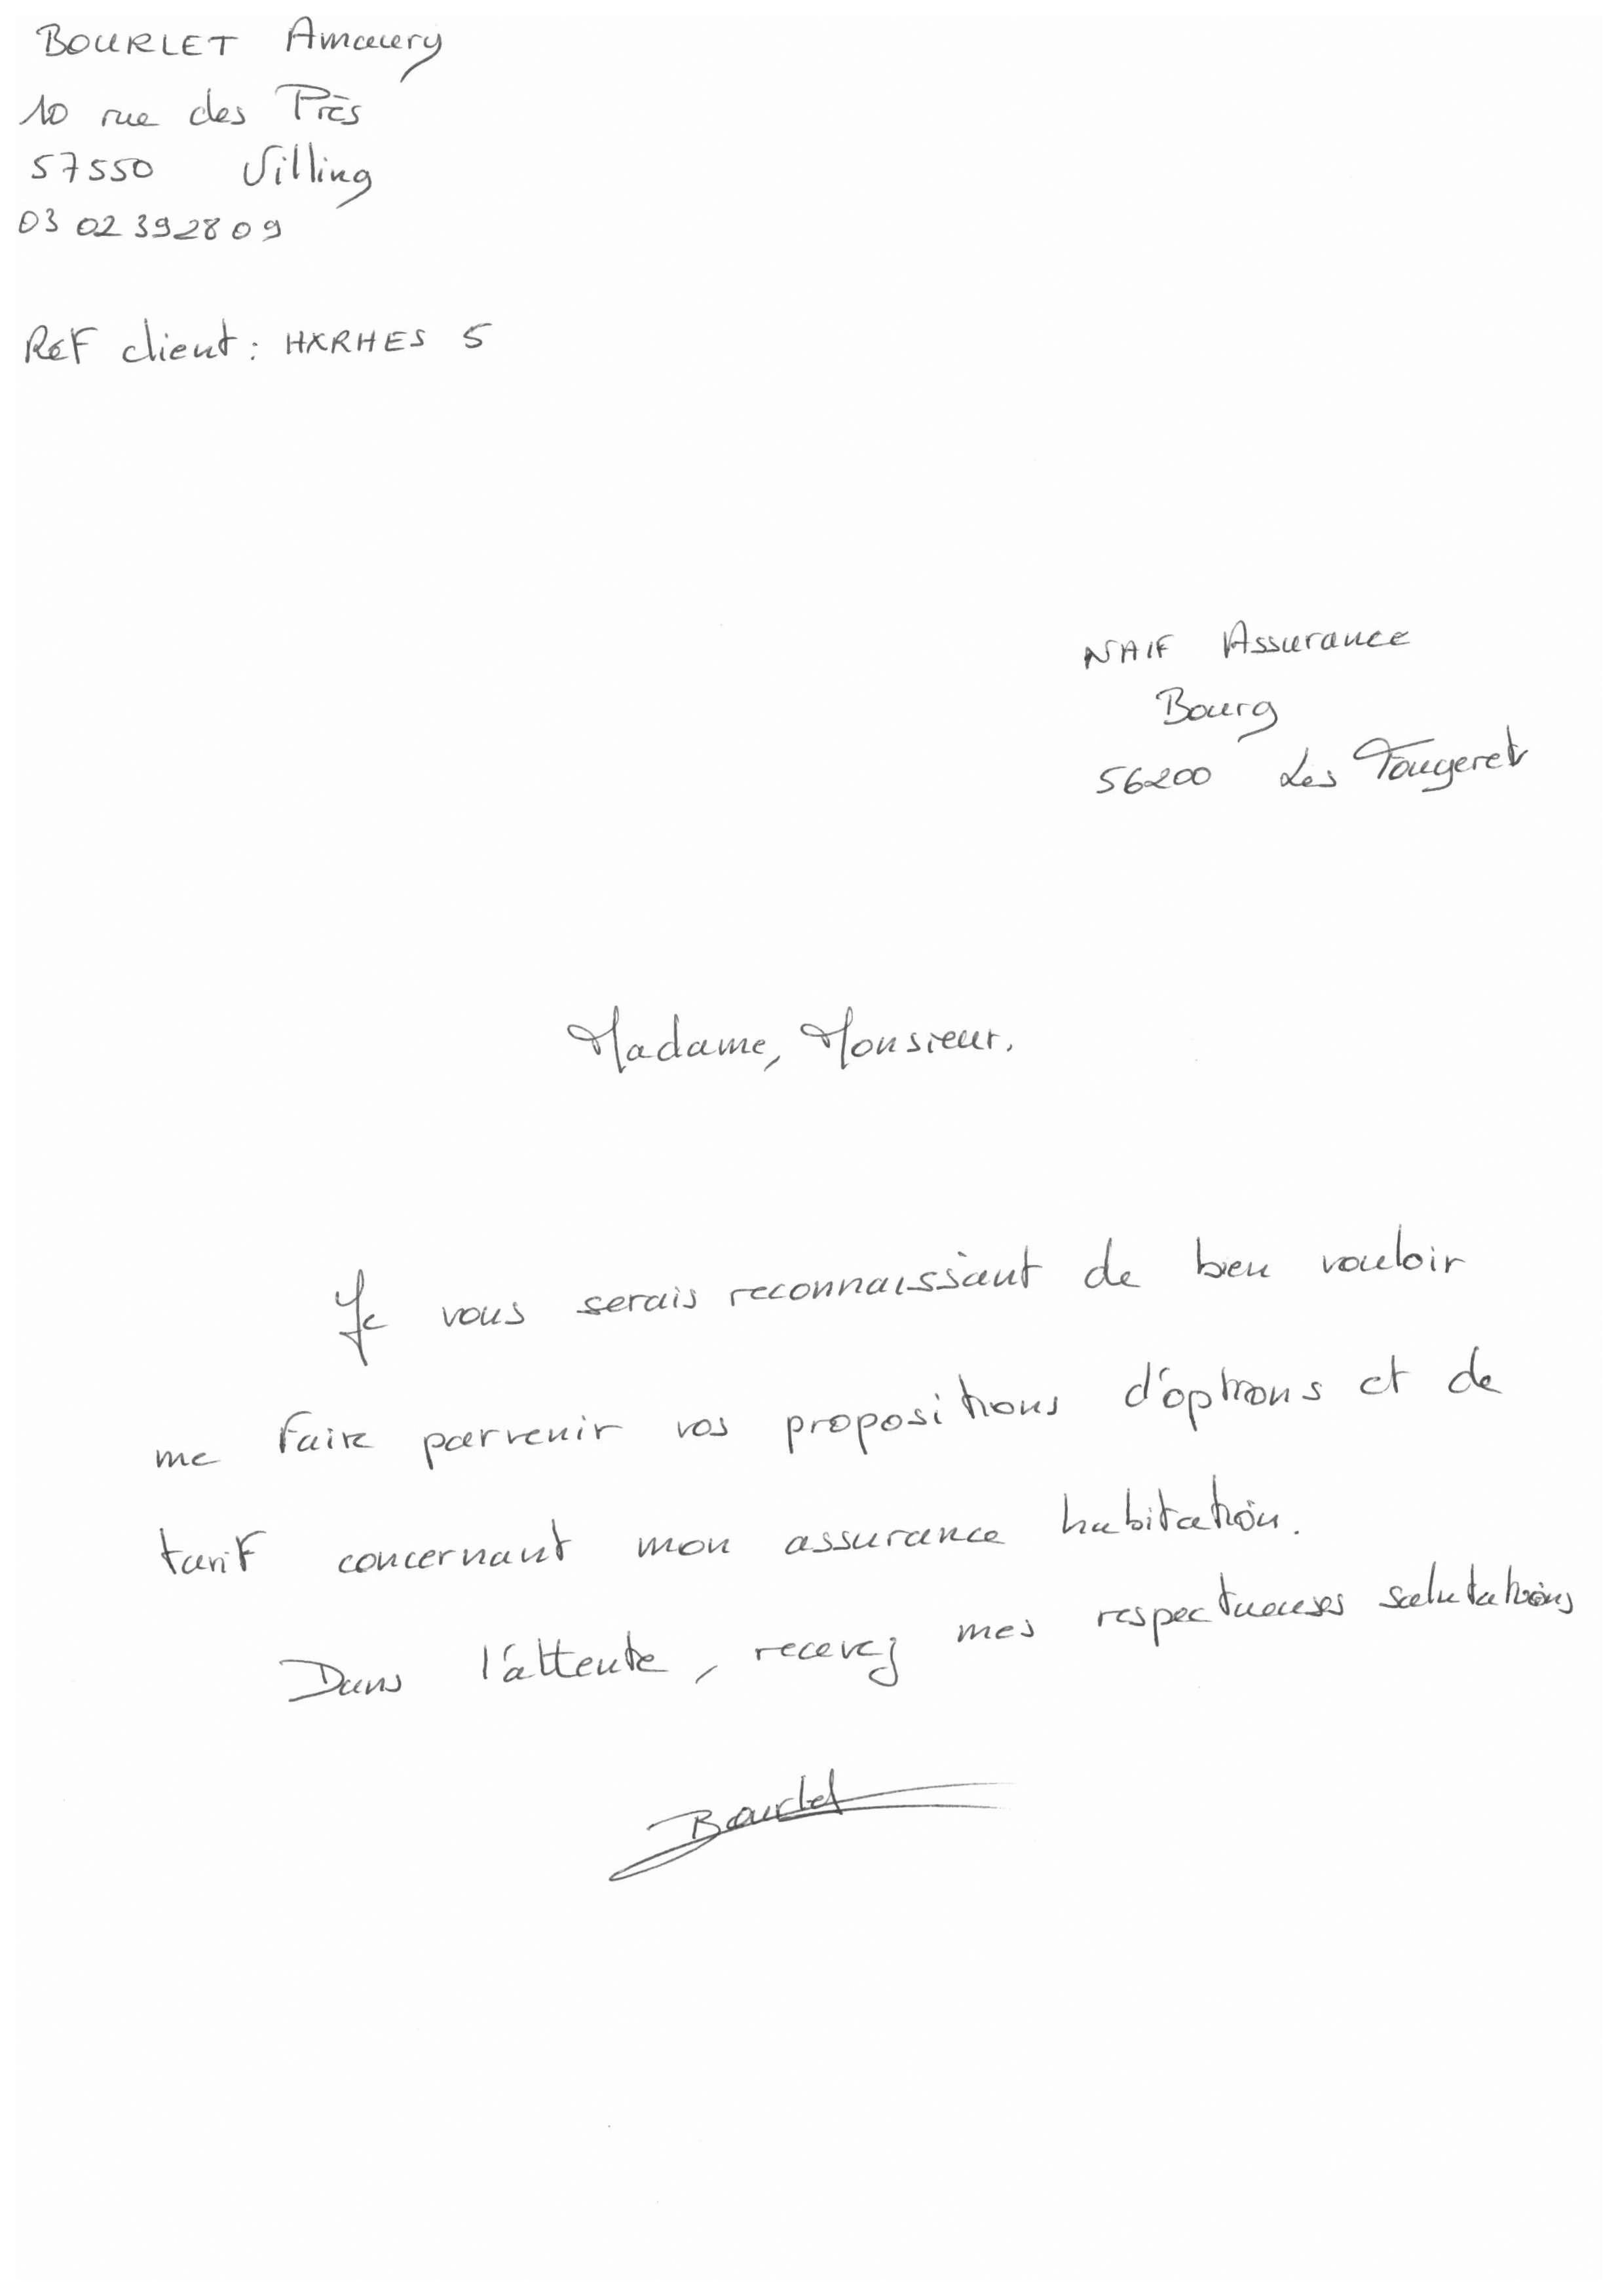 BOURLET Amaury
10 rue des Près
57550 Villing
03 02 39 28 09
REF client : HXRHES 5
NAIF Assurance
Bourg
56200 Les Fougeret
Madame, Monsieur.
Je vous serais reconnaissant de bien vouloir
me faire parvenir vos propositions d'options et de
tarif concernant mon assurance habitation.
Dans l'attente, recevez mes respectueuses salutations
Bourlet